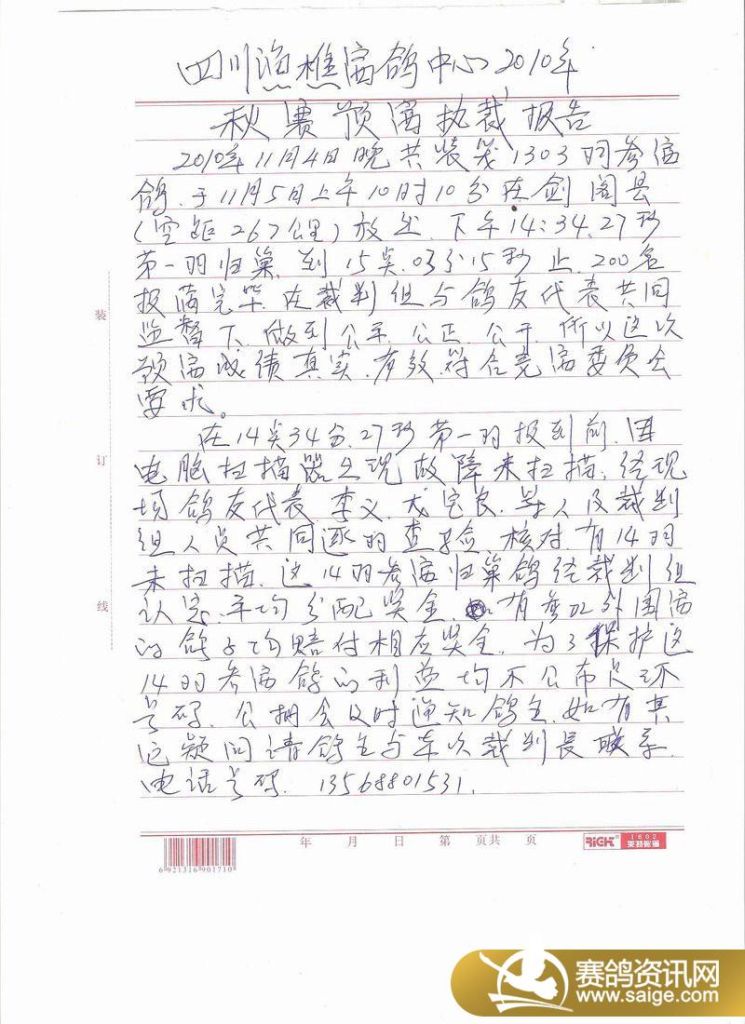 四川渔樵赛鸽中心2010年
秋赛预赛执裁报告
2010年11月4日晚共装笼1303羽参赛
鸽.于11月5日上午10时10分在剑阁县
(空距267公里)放出.下午14:34.27秒
第一羽归巢.到15点.03分15秒止.200名
报满完毕.在裁判组与鸽友代表共同
监督下.做到公平.公正.公开.所以这次
预赛成绩真实.有效.符合竞赛委员会
要求。
在14点34分.27秒第一羽报到前.因
电脑扫描器出现故障未扫描.经现
场鸽友代表李义.尤定良.等人及裁判
组人员共同逐羽查验.核对有14羽
未扫描.这14羽参赛归巢鸽经裁判组
认定.平均分配奖金.如有参加外围赛
的鸽子均赔付相应奖金.为了保护这
14羽参赛鸽的利益均不公布足环
号码.公棚会及时通知鸽主.如有其
它疑问请鸽主与本次裁判长联系.
电话号码.13568801531.
装
订
线
年 月 日 第 页共 页
6921316901710
RiCH
1602
www.saige.com
赛鸽资讯网